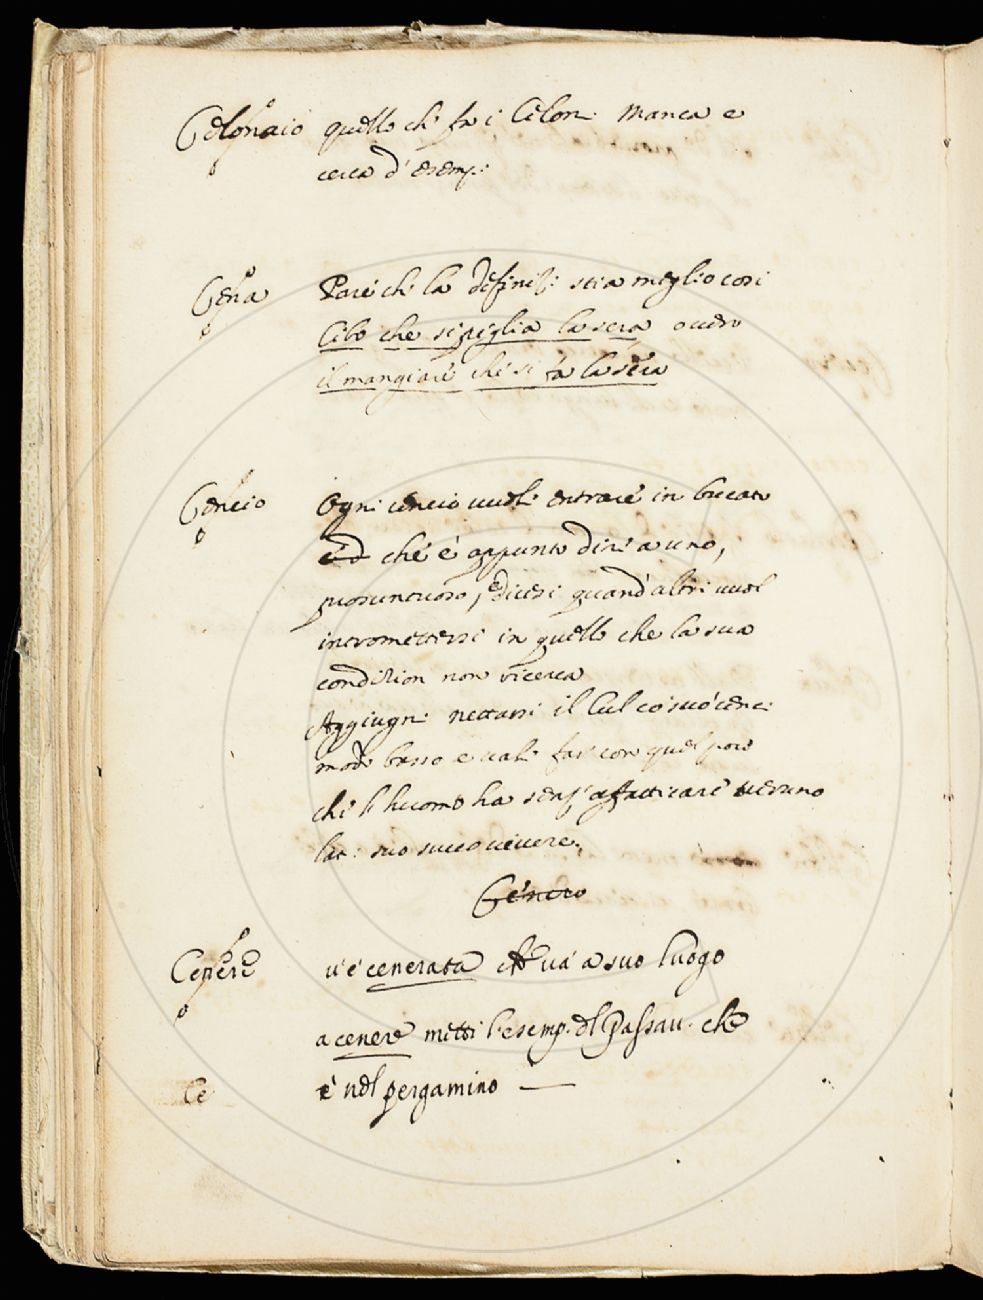 Celonaio quello ch fa i Celoni Manca e
cerca d'esemp:
Cena Pare ch la definiz: stia meglio cosi
Cibo che si piglia la sera overo
il mangiare che si fa la sera
Cencio Ogni cencio vuol entrare in bucato
ed che è appunto dire a uno,
prosuntuoso, e dicesi quand'altri vuol
intromettersi in quello che la sua
condizion non ricerca
Aggiugni nettarsi il Cul co suo cenci
modo basso e vale far con quel poco
che l'huomo ha senz'affatticare veruno
lat: suo succo vivere.
Centro
Cenere v'è cenerata che va a suo luogo
a cenere metti l'esemp. del Passav. che
Ce è nel pergamino —